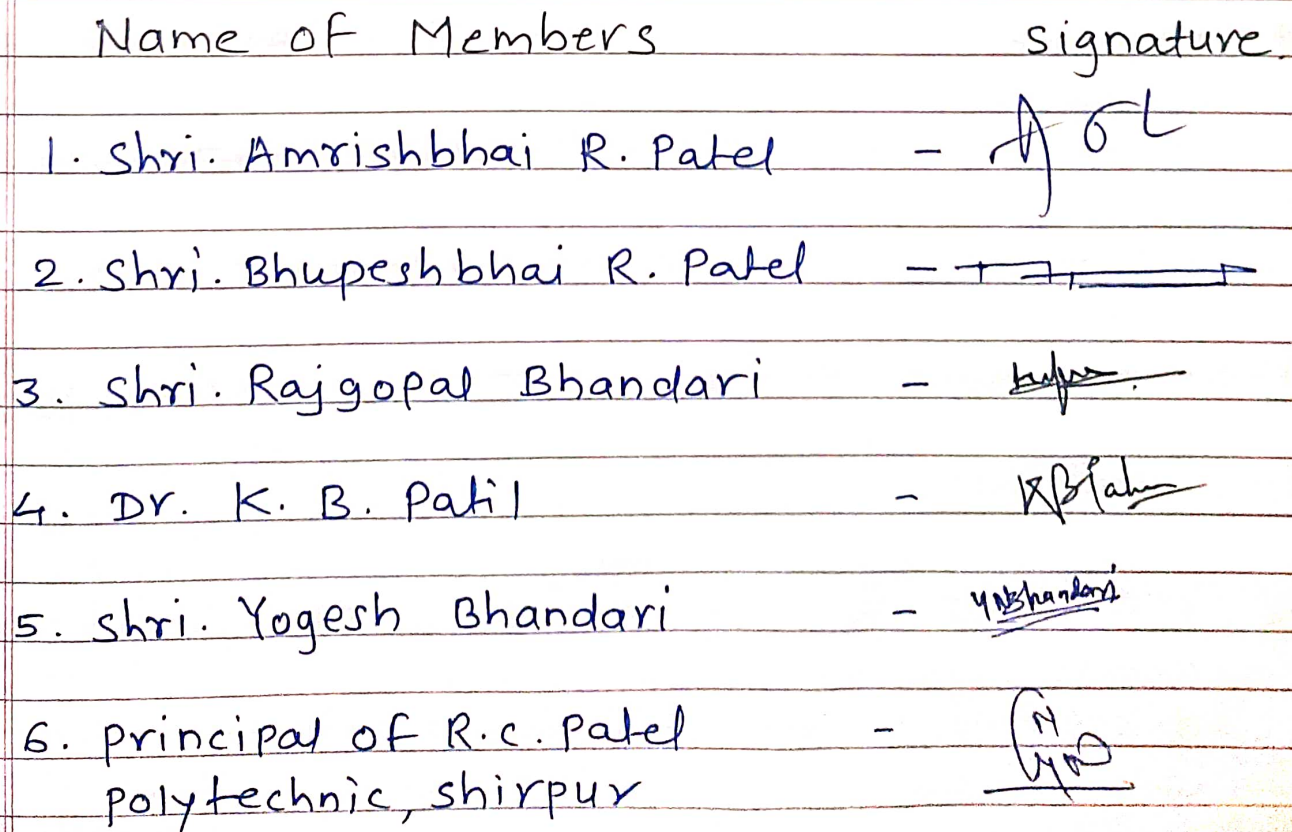 Name of Members signature.
1. Shri. Amrishbhai R. Patel -
2. Shri. Bhupeshbhai R. Patel -
3. Shri. Rajgopal Bhandari -
4. Dr. K. B. Patil -
5. Shri. Yogesh Bhandari - YNBhandari
6. principal of R.C. Patel -
polytechnic, shirpur